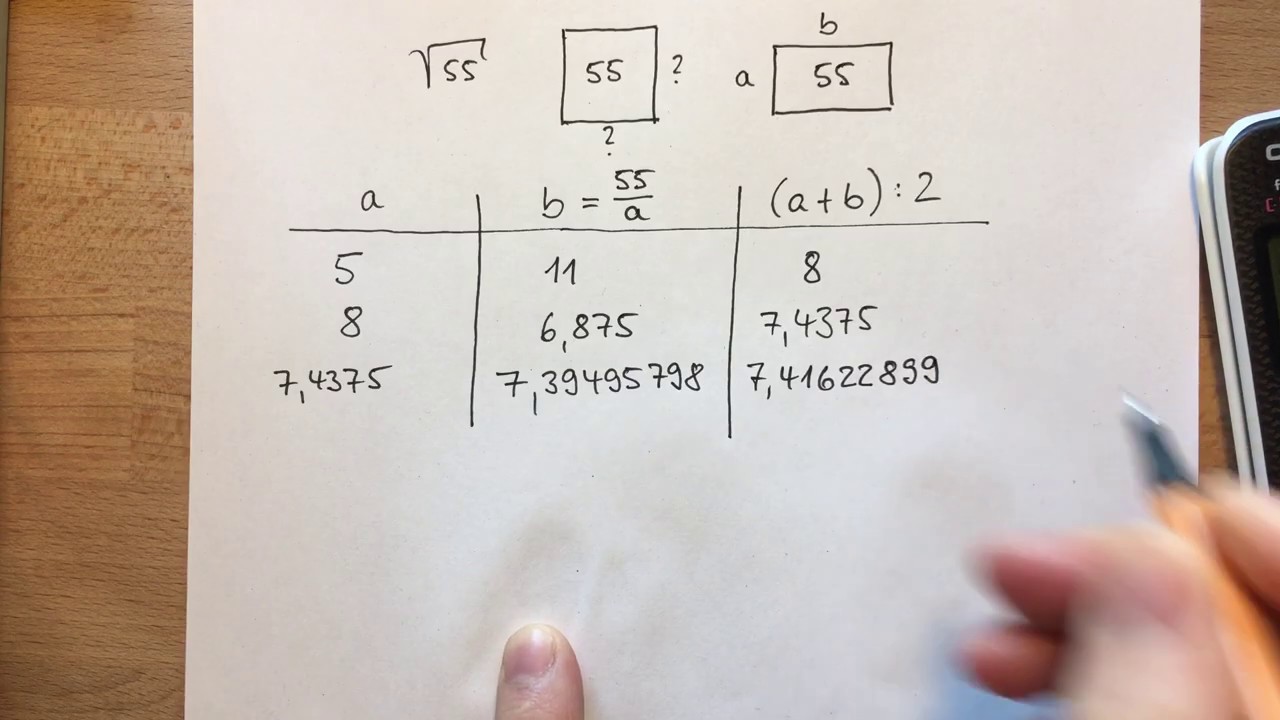 b
√55 55 ? a 55
?
a b = 55/a (a+b) : 2
5 11 8
8 6,875 7,4375
7,4375 7,39495798 7,41622899